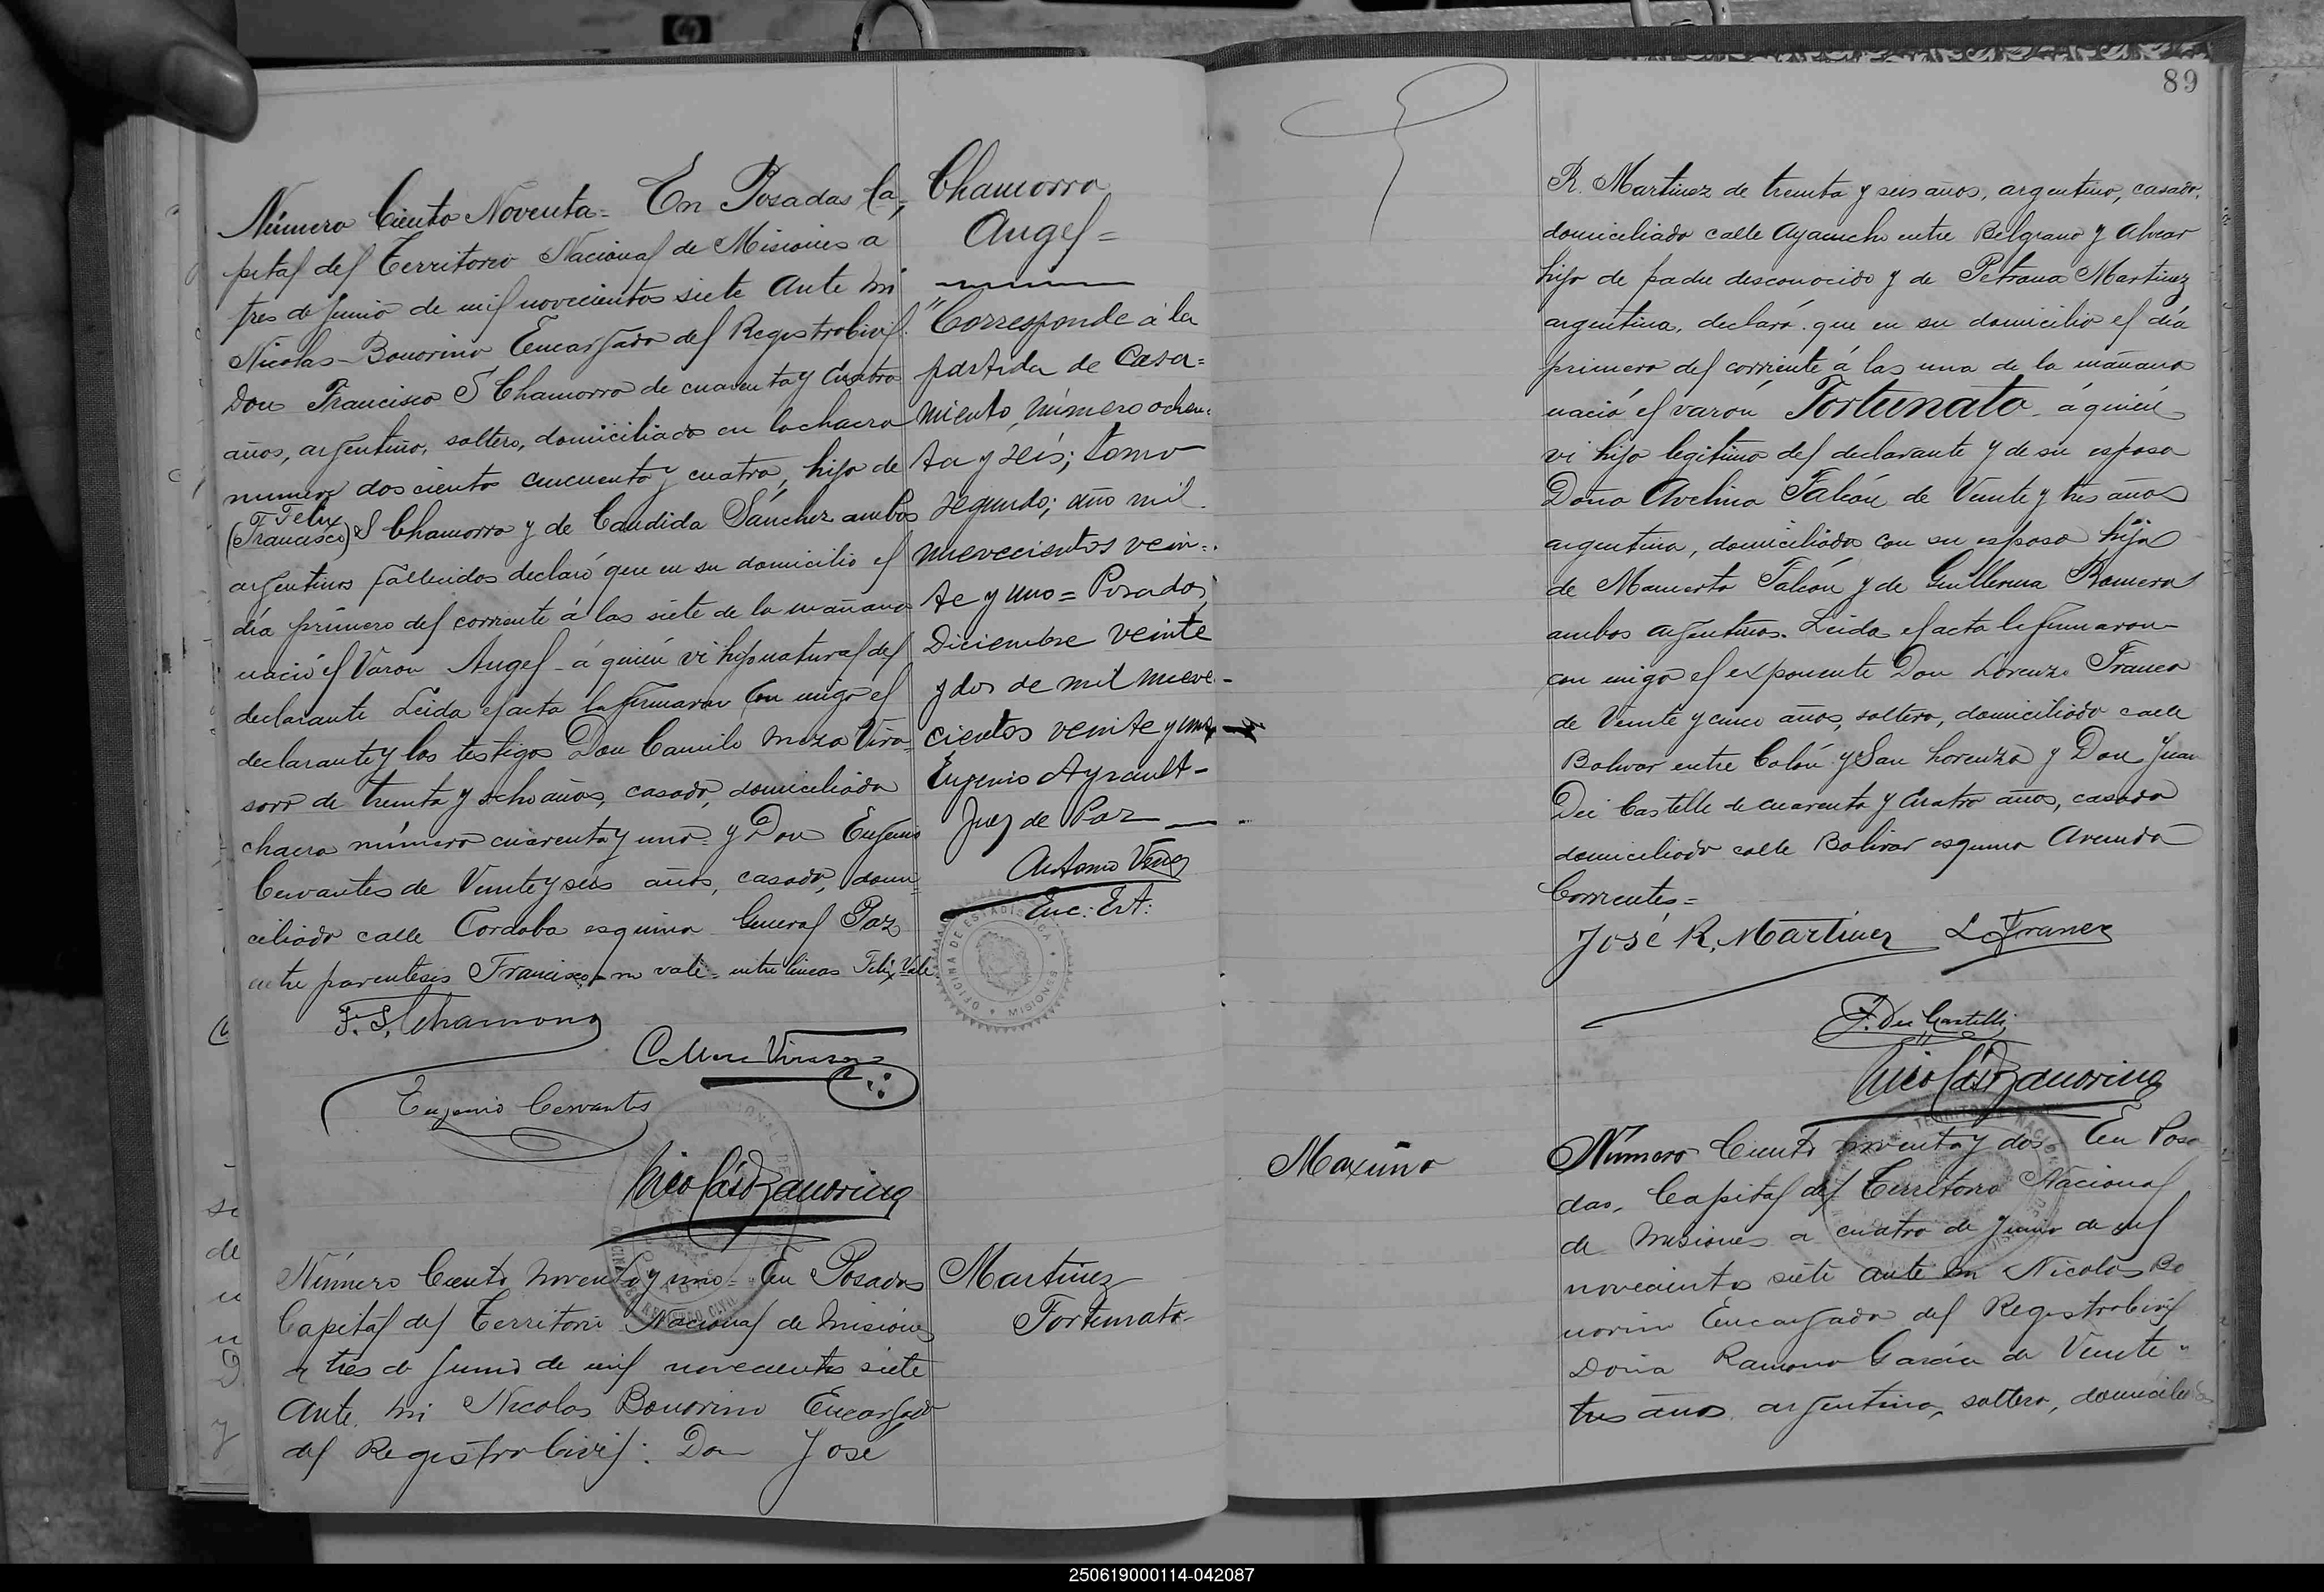 Número Ciento Noventa = En Posadas Ca,
pital del Territorio Nacional de Misiones a
tres de Junio de mil novecientos siete Ante mi
Nicolas Bonorino Encargado del Registro Civil.
Don Francisco S Chamorro de cuarenta y cuatro
años, argentino, soltero, domiciliado en la chacra
numero dos ciento cincuenta y cuatro, hijo de
Felix
(Francisco) S Chamorro y de Candida Sánchez ambos
argentinos fallecidos declaró que en su domicilio el
día primero del corriente á las siete de la mañana
nació el Varon Angel - á quién vi hijo natural del
declarante Leida el acta la firmaron con migo el
declarante y los testigos Don Camilo Meza Vira=
soro de treinta y ocho años, casado, domiciliado
chacra número cuarenta y uno = y Don Eugenio
Cervantes de Veinte y seis años, casado, domi=
ciliado calle Cordoba esquina General Paz
entre parentesis Francisco - no vale = entre lineas Felix Vale
F. S. Chamorro
C. Meza Virasoro
Eugenio Cervantes
Nicolás Bonorino
Chamorro
Angel =
"Corresponde á la
partida de Casa=
miento, número ochen=
ta y seis; tomo
segundo; año mil
nuevecientos vein=
te y uno = Posadas,
Diciembre veinte
y dos de mil nueve-
cientos veinte y uno
Eugenio Ayrault -
Juez de Paz
Antonio
Enc. Est.
OFICINA DE ESTADISTICA MISIONES
Número Ciento noventa y uno = En Posadas
Capital del Territorio Nacional de Misiones
a tres de Junio de mil novecientos siete
Ante mi Nicolas Bonorino Encargado
del Registro Civil: Don José
Martinez
Fortunato
89
R. Martinez de treinta y seis años, argentino, casado,
domiciliado calle Ayacucho entre Belgrano y Alvear
hijo de padre desconocido y de Petrona Martinez
argentina, declaró que en su domicilio el día
primero del corriente á las una de la mañana
nació el varón Fortunato á quién
vi hijo legitimo del declarante y de su esposa
Doña Avelina Falcón de Veinte y tres años
argentina, domiciliada con su esposo hija
de Mamerto Falcón y de Guillerma Romero
ambos argentinos. Leida el acta la firmaron
con migo el exponente Don Lorenzo Franco
de Veinte y cinco años, soltero, domiciliado calle
Bolivar entre Colón y San Lorenzo y Don Juan
Dei Castelli de cuarenta y cuatro años, casado
domiciliado calle Bolivar esquina Avenida
Corrientes =
José R. Martinez L. Franco
J. Dei Castelli
Nicolás Bonorino
Maximo
Número Ciento noventa y dos En Posa
das, Capital del Territorio Nacional
de Misiones a cuatro de Junio de mil
novecientos siete ante mi Nicolas Bo
norino Encargado del Registro Civil
Doña Ramona García de Veinte
tres años argentina, soltera, domiciliada
250619000114-042087